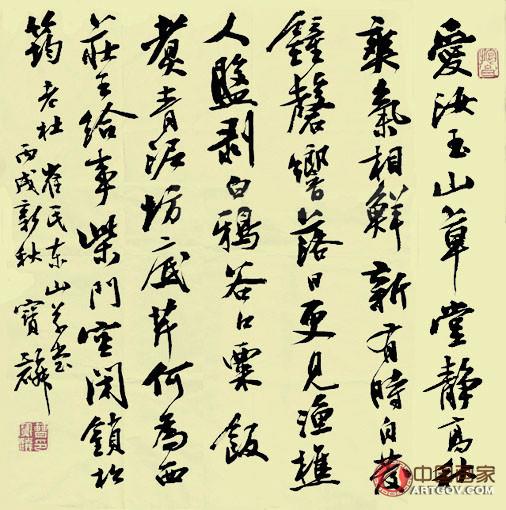 愛汝玉山草堂静高秋
爽氣相鮮新有時自發
鐘磬響落日更見漁樵
人盤剥白鴉谷口栗飯
煮青泥坊底芹何為西
莊王給事柴門空閉鎖松
筠 老杜崔氏東山草堂
丙戌新秋 寶麟
中国画家
ARTGOV.COM